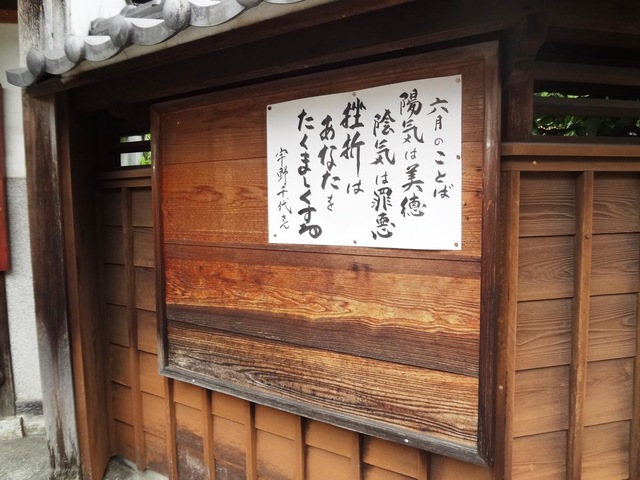 六月のことば
陽気は美徳
陰気は罪悪
挫折は
あなたを
たくましくする
宇野千代さん